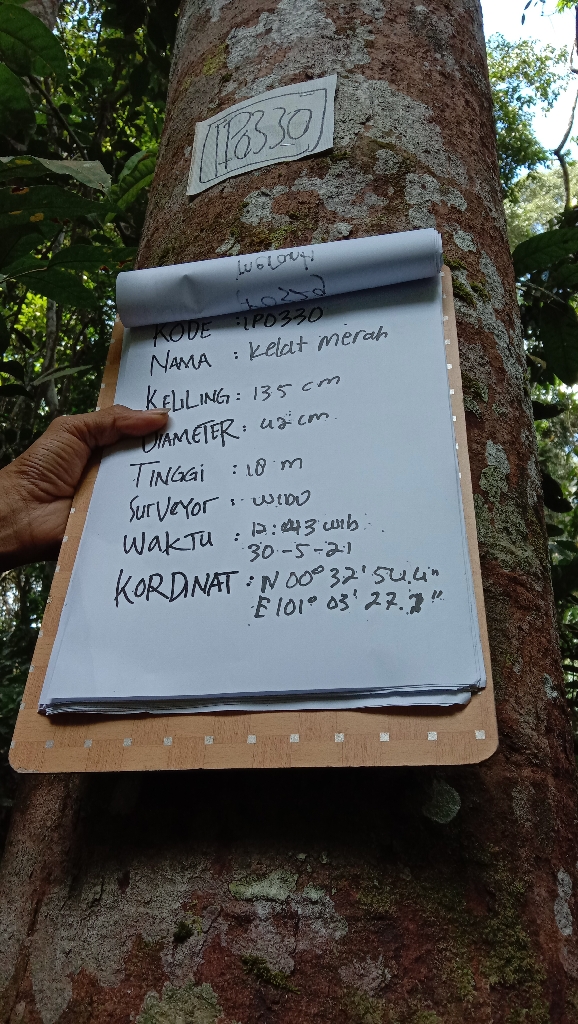 IP0330
KODE : IP0330
NAMA : Kelat merah
KELILING : 135 cm
DIAMETER : 42 cm
TINGGI : 18 m
SURVEYOR : WIDO
WAKTU : 12:43 wib
30-5-21
KORDINAT : N 00° 32' 54.4"
E 101° 03' 27.